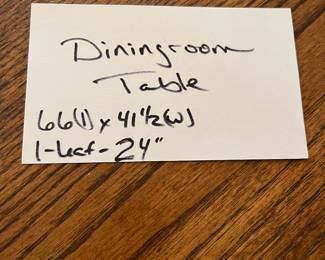 Diningroom
Table
66(l) x 41 1/2(w)
1-leaf-24"